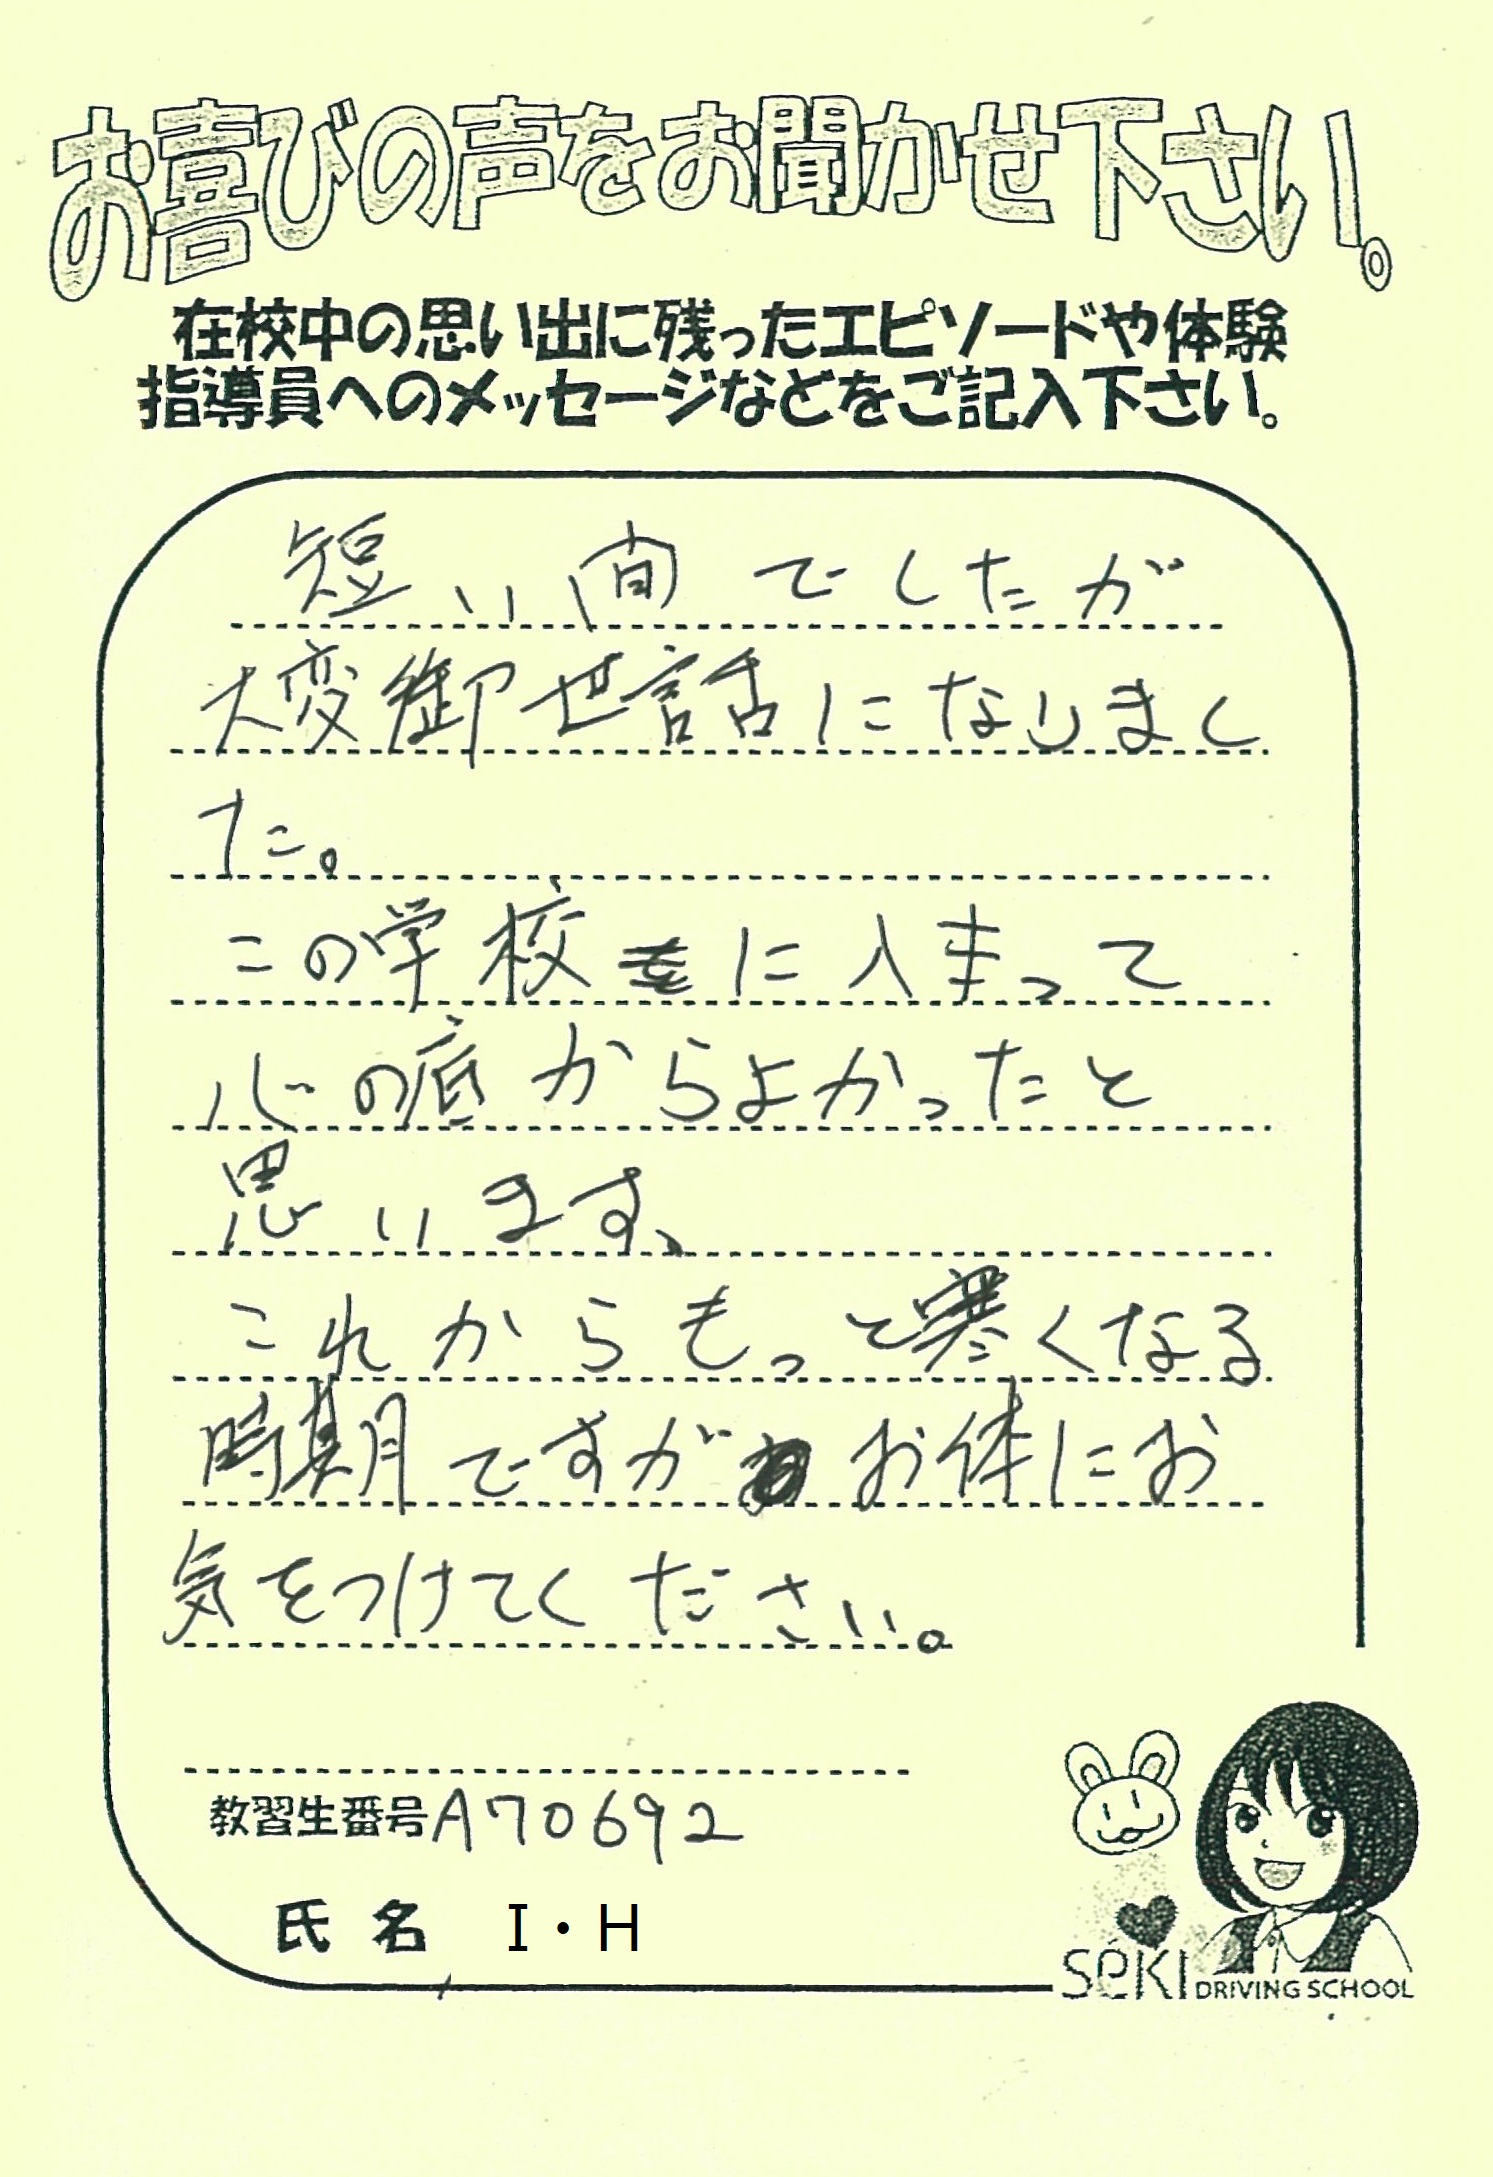 お喜びの声をお聞かせ下さい。
在校中の思い出に残ったエピソードや体験
指導員へのメッセージなどをご記入下さい。
短い間でしたが
大変御世話になりまし
た。
この学校に入まって
心の底からよかったと
思います、
これからもっと寒くなる
時期ですがお体にお
気をつけてください。
教習生番号A70692
氏名 I・H
SeKI DRIVING SCHOOL